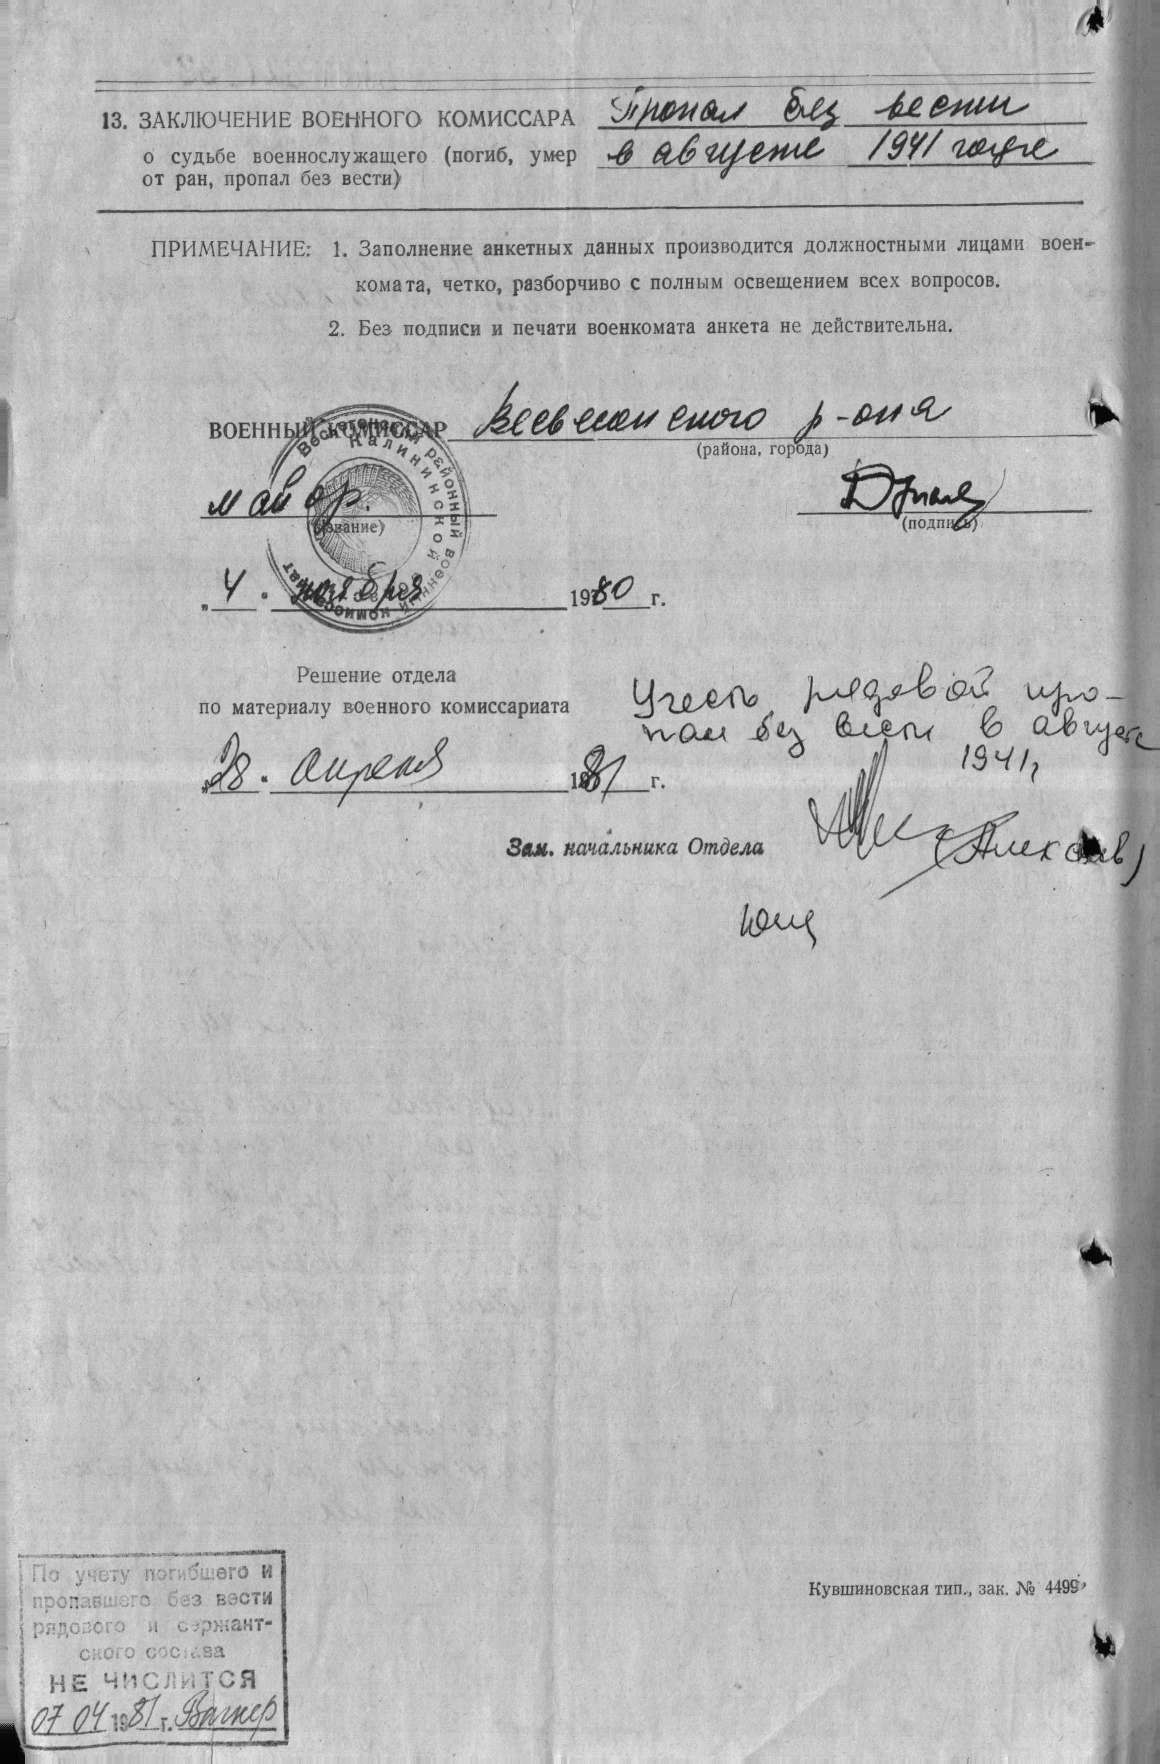 13. ЗАКЛЮЧЕНИЕ ВОЕННОГО КОМИССАРА Пропал без вести
о судьбе военнослужащего (погиб, умер в августе 1941 года
от ран, пропал без вести)
ПРИМЕЧАНИЕ: 1. Заполнение анкетных данных производится должностными лицами воен-
комата, четко, разборчиво с полным освещением всех вопросов.
2. Без подписи и печати военкомата анкета не действительна.
ВОЕННЫЙ КОМИССАР Весьегонского р-она
(района, города)
майор.
(звание) (подпись)
Весьегонский районный военный комиссариат
Калининской
„4“ ноября 1980 г.
Решение отдела
по материалу военного комиссариата
Учесть, рядовой про-
пал без вести в августе
1941г
„28“ апреля 1981 г.
Зам. начальника Отдела
По учету погибшего и
пропавшего без вести
рядового и сержант-
ского состава
НЕ ЧИСЛИТСЯ
07 04 1981 г. Вагнер
Кувшиновская тип., зак. № 4499